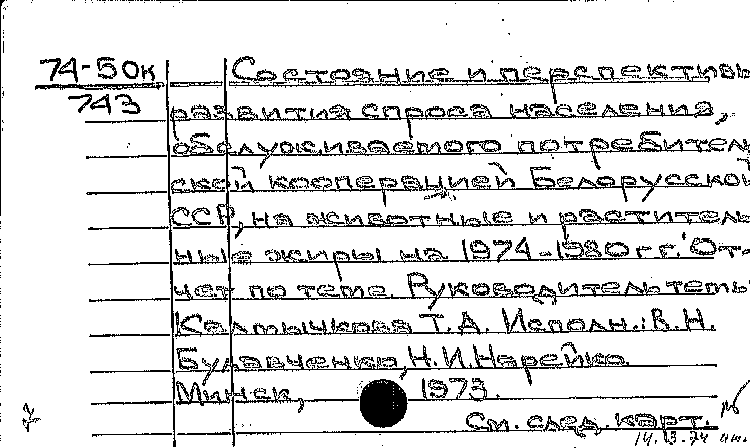 74-50к
743
Состояние и перспективы
развития спроса населения,
обслуживаемого потребитель
ской кооперацией Белорусской
ССР, на животные и раститель
ные жиры на 1974-1980 гг. От-
чет по теме. Руководитель темы
Т.Д. Исполн.: В.Н.
Булавченко, Н.И. Нарейко.
Минск, 1973.
См. след. карт.